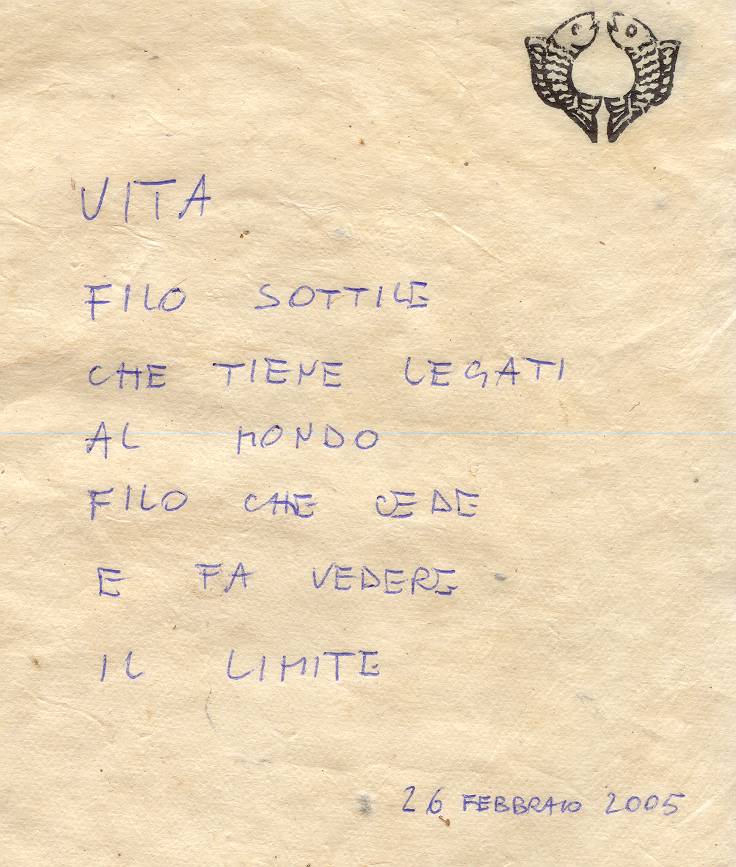 VITA
FILO SOTTILE
CHE TIENE LEGATI
AL MONDO
FILO CHE CEDE
E FA VEDERE
IL LIMITE
26 FEBBRAIO 2005